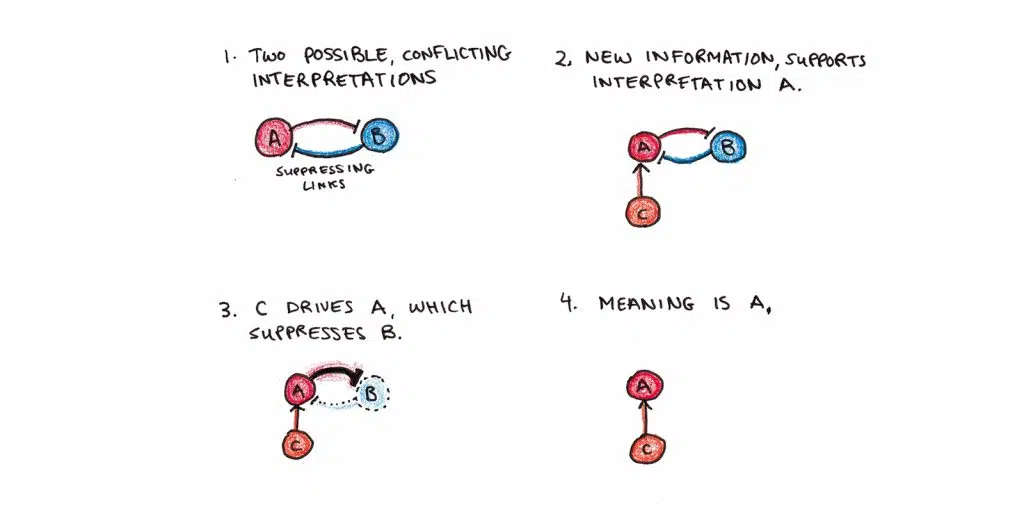 1. TWO POSSIBLE, CONFLICTING
INTERPRETATIONS
A
B
SUPPRESSING
LINKS
2. NEW INFORMATION, SUPPORTS
INTERPRETATION A.
A
B
C
3. C DRIVES A, WHICH
SUPPRESSES B.
A
B
C
4. MEANING IS A,
A
C